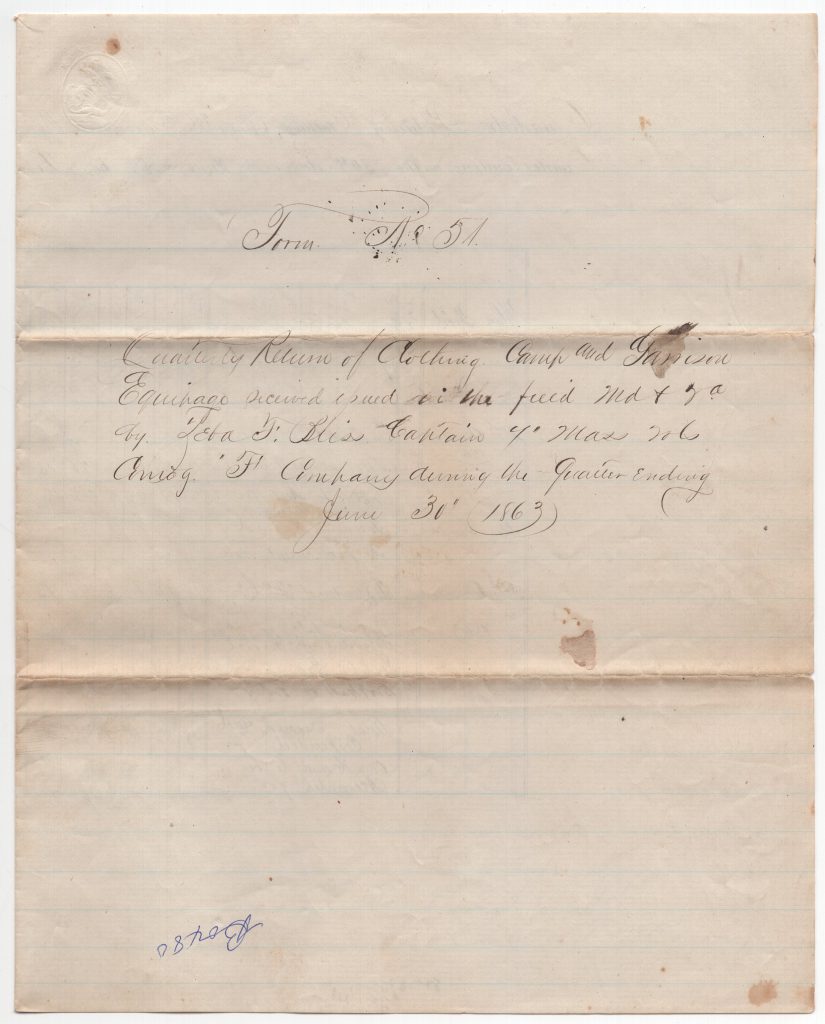 Form No 51.
Quarterly Return of Clothing. Camp and Garrison
Equipage received issued in the field Md & Va
by. F. Bliss Captain 7" Mass Vols
Comdg. "F" Company during the Quarter Ending
June 30" 1863